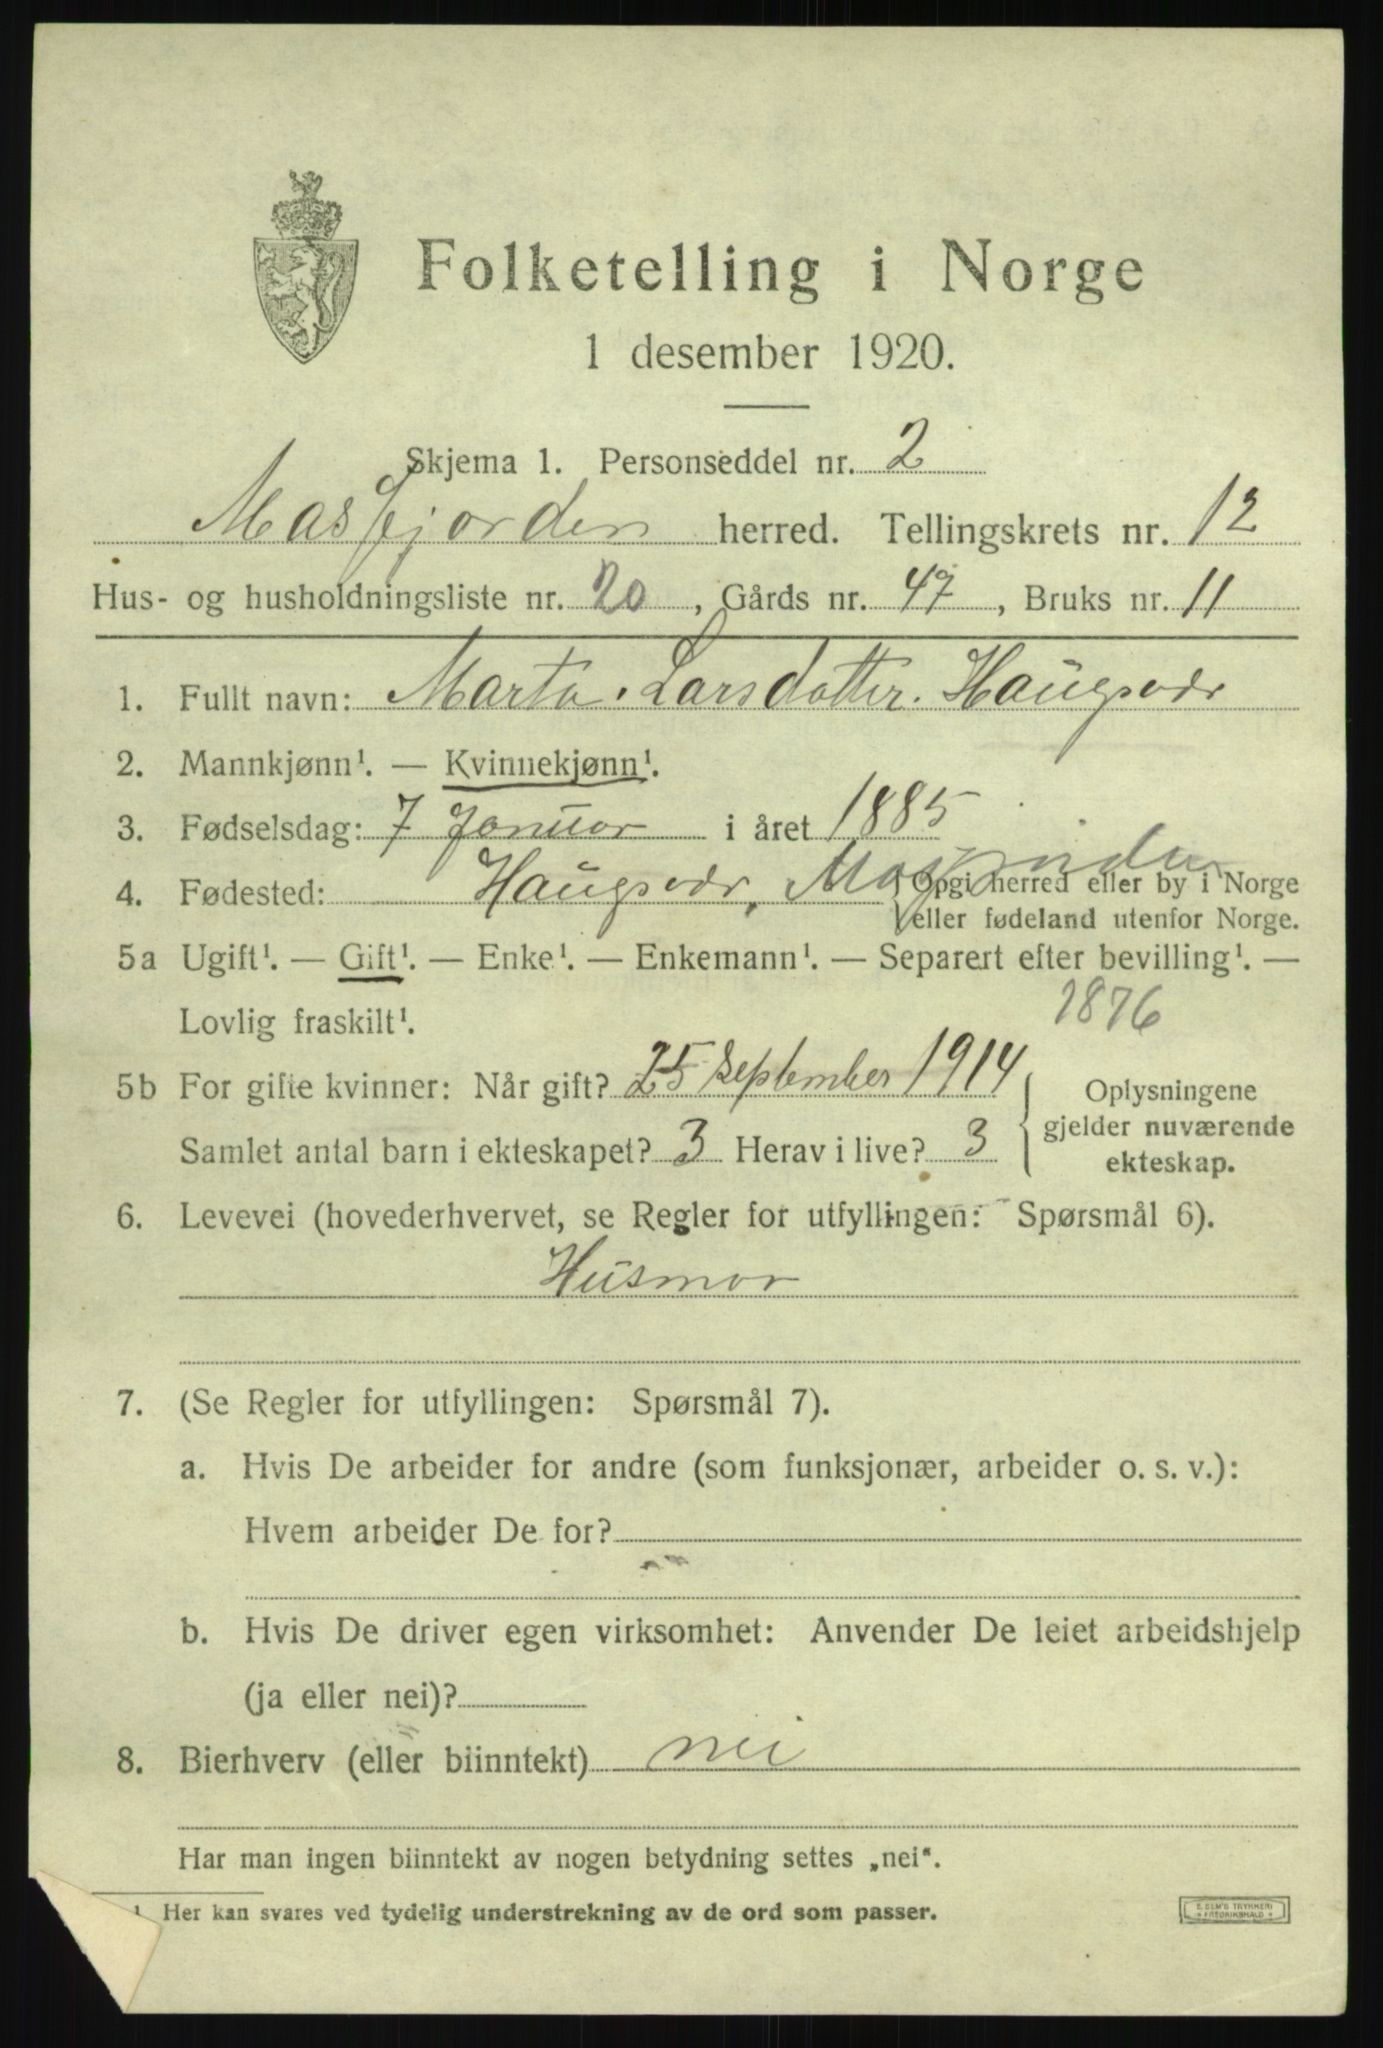 Folketelling i Norge
1 desember 1920.
Skjema 1. Personseddel nr. 2
Masfjorden herred. Tellingskrets nr. 12
Hus- og husholdningsliste nr. 20, Gårds nr. 47, Bruks nr. 11
1. Fullt navn: Marta Larsdotter. Haugsvær
2. Mannkjønn¹. — Kvinnekjønn¹.
3. Fødselsdag: 7 Januar i året 1885
4. Fødested: Haugsvær, Masfjorden {Opgi herred eller by i Norge
eller fødeland utenfor Norge.
5a Ugift¹. — Gift¹. — Enke¹. — Enkemann¹. — Separert efter bevilling¹. —
Lovlig fraskilt¹. 1876
5b For gifte kvinner: Når gift? 25 September 1914
Samlet antal barn i ekteskapet? 3 Herav i live? 3
{ Oplysningene
gjelder nuværende
ekteskap.
6. Levevei (hovederhvervet, se Regler for utfyllingen: Spørsmål 6).
Husmor
7. (Se Regler for utfyllingen: Spørsmål 7).
a. Hvis De arbeider for andre (som funksjonær, arbeider o. s. v.):
Hvem arbeider De for?
b. Hvis De driver egen virksomhet: Anvender De leiet arbeidshjelp
(ja eller nei)?
8. Bierhverv (eller biinntekt) nei
Har man ingen biinntekt av nogen betydning settes „nei“.
¹ Her kan svares ved tydelig understrekning av de ord som passer.
E. SEM'S TRYKKERI
FREDRIKSHALD